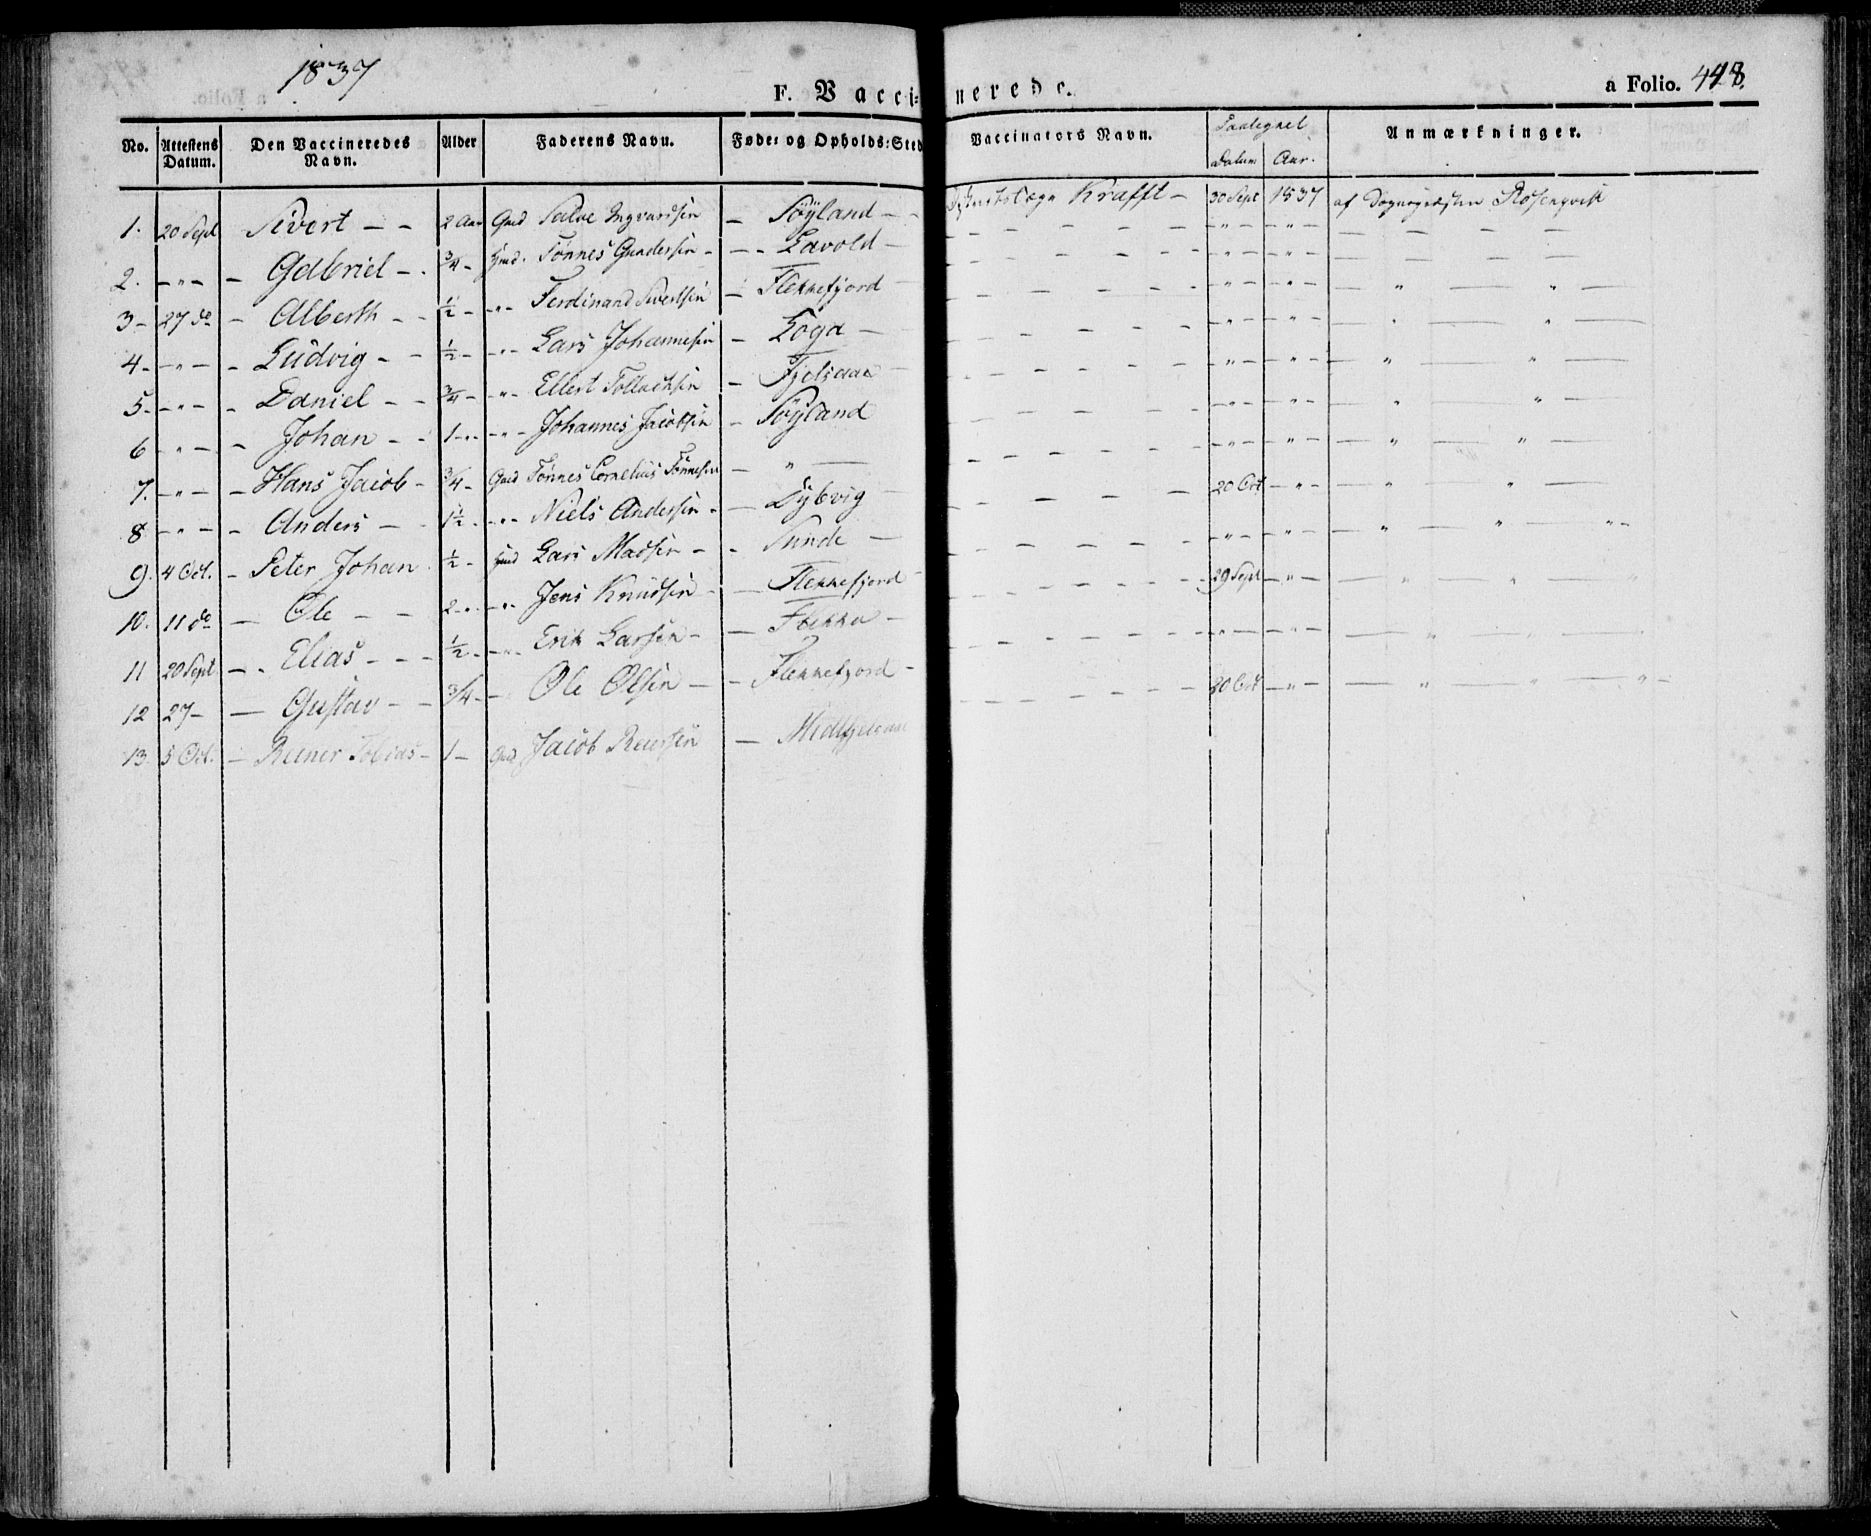 1837
F. Vaccinerede. a Folio. 448.
No. Attestens Datum. Den Vaccineredes Navn. Alder Faderens Navn. Føde- og Opholds-Sted Vaccinators Navn. Paategnet Datum Aar. Anmærkninger.
1. 20 Sept Sivert — — 2 Aar Gmd Salve Ingvardsen — Søyland — — Krafft — 30 Sept 1837 af Sognepræsten Rosenqvist
2. — " — — Gabriel — . 3/4 — Hmd. Tønnes Gundersen — — — Lavold — — " — — " —
3 — 27 do — Alberth — — 1/2 — — " — Ferdinand Sivertsen — Flekkefjord — " — — " — — " — " —
4 — — " — — Ludvig — — 1/2 — — " — Lars Johannesen — Loga — — " — — " — — " — " —
5 — — " — — Daniel — — 3/4 — — " — Ellert Tollachsen — Fjelsaae — " — — " — — " — " —
6 — " — — Johan — — 1 — " — — " — Johannes Jacobsen — Søyland — " — — " — — " — " —
7. — " — — Hans Jacob — 3/4 — Gmd Tønnes Cornelius Tønnesen — " — — " — — " — — " — " —
8 — " — — Anders — 1 1/2 — — " — Niels Andersen — — Dybvig — 20 Oct — " — — " — " —
9. 4 Oct. — Peter Johan 1/2 — Hmd Lars Madsen — — Sunde — — " — — " — — " — " — " —
10. 11 do — Ole — — 2 — " — — " — Jens Knudsen — — Flekkefjord — 29 Sept — " — — " — " — " —
11 20 Sept — . Elias — — — 1/2 — — " — Erik Larsen — — Flekke — — " — — " — — " — " —
12 27 — — Gustav — — 3/4 — — Ole Olsen — — Flekkefjord — 20 Oct — " — — " — " — " —
13. 5 Oct. — Reiner Tobias — 1 — Gmd Jacob Reiersen —